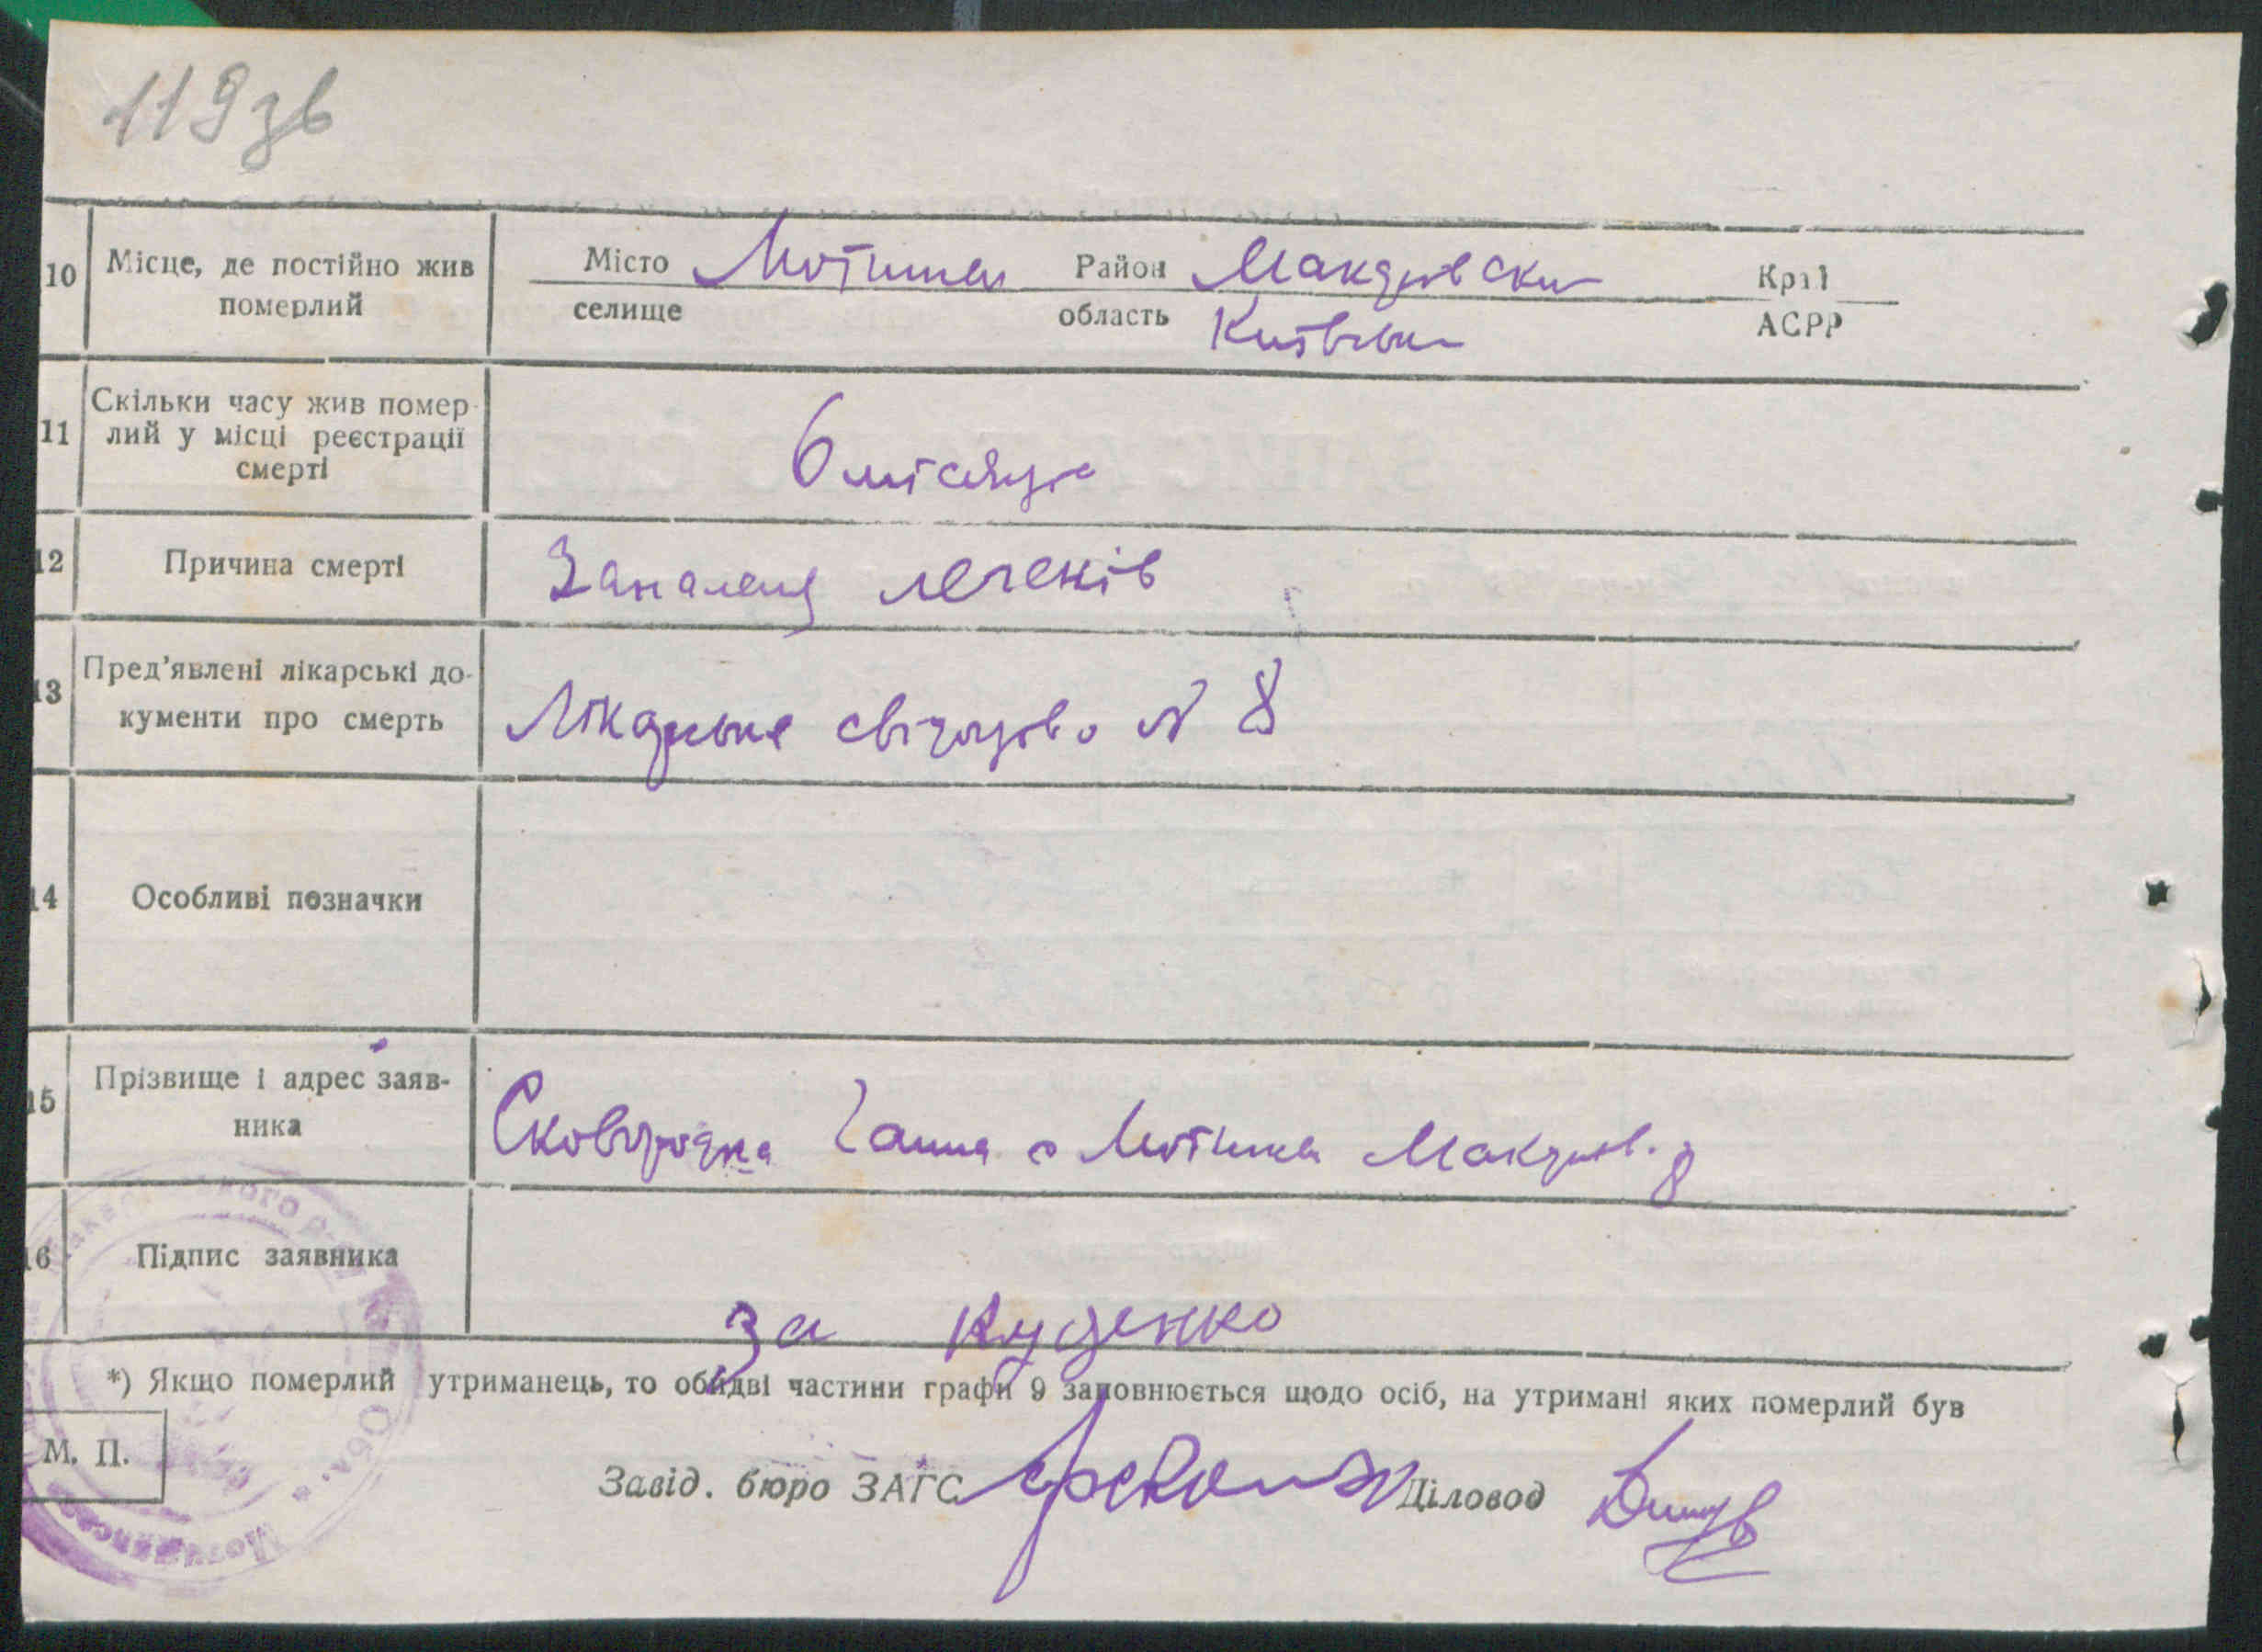 119зв
10 Місце, де постійно жив померлий
Місто Мотижин Район Макарівськ Край
селище область Київськ АСРР
11 Скільки часу жив помер-
лий у місці реєстрації
смерті
6 місяців
12 Причина смерті Запаленя легенів
13 Пред'явлені лікарські до-
кументи про смерть
Лікарське свідоцтво № 8
14 Особливі позначки
15 Прізвище і адрес заяв-
ника
Сковородка Ганна с Мотижин Макарів. р
16 Підпис заявника
за Куценко
*) Якщо померлий утриманець, то обидві частини графи 9 заповнюється щодо осіб, на утримані яких померлий був
М. П.
Завід. бюро ЗАГС Діловод